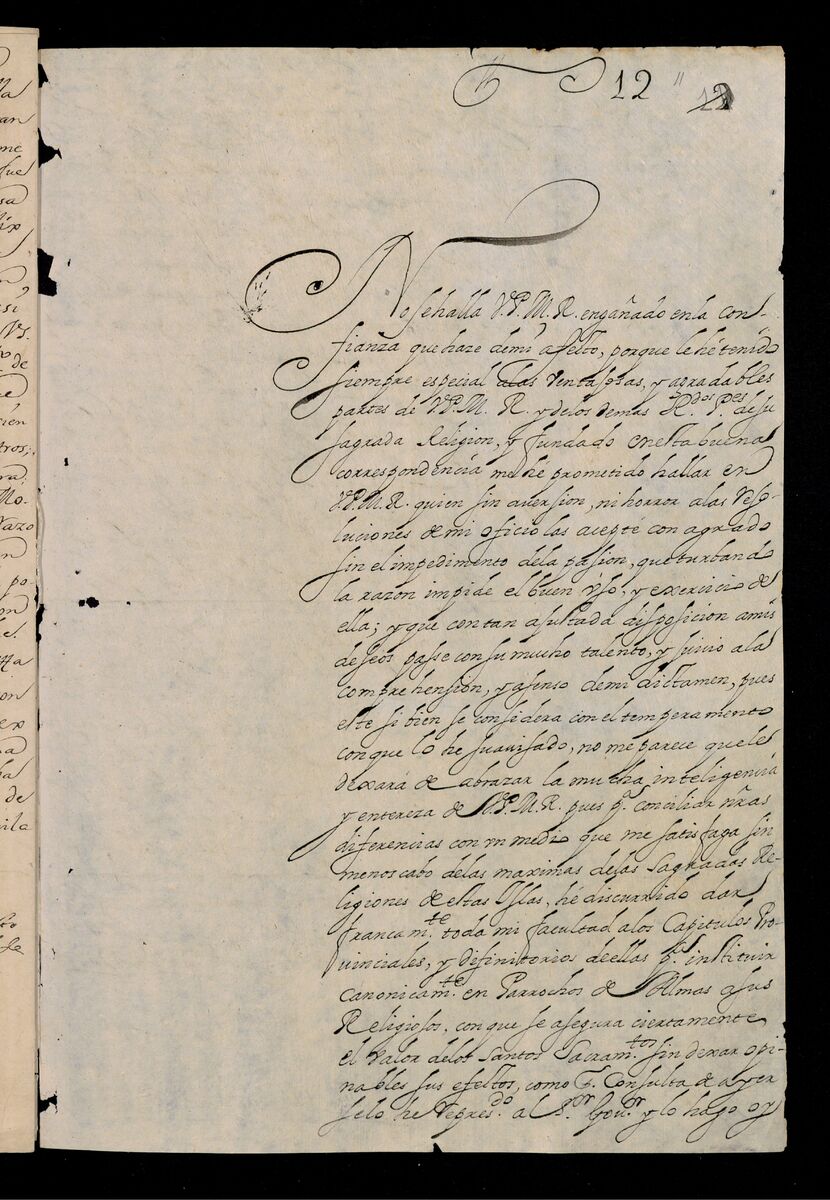 12
No sehalla V.P.M.R. engañado enla con-
fianza que haze demi afecto, porque le hé tenido
siempre especial alas ventajosas, y agradables
partes de V.P.M.R. y delos demas R.dos P.es desu
sagrada Religion, y fundado enesta buena
correspondencia mehé prometido hallar en
V.P.M.R. quien sin aversion, ni horror alas reso-
luciones de mi oficio las acepte con agrado
sin el impedimento dela pasion, que turbando
la razon impide el buen vso, y exercicio de
ella; y que con tan ajustada disposicion amis
deseos passe con su mucho talento, y juivio ala
comprehension, y asenso demi dictamen, pues
este si bien se considera con el temperamento
conque lo he suavisado, no me parece quele
dexará de abrazar la mucha inteligencia
y entereza de V.P.M.R. pues p.a conciliar nr̃as
diferencias con vn medio que me satisfaga sin
menoscabo delas maximas delas Sagradas Re-
ligiones de estas Yslas, hé discurrido dar
francam.te toda mi facultad alos Capitulos Pro-
uinciales, y Difinitorios deellas p.a instituir
canonicam.te en Parrochos de Almas asus
Religiosos, con que se asegura ciertamente
el valor delos Santos Sacram.tos sin dexar opi-
nables sus efectos, como Consulta de ayer
selo he repres.do al S.or Gou.or y lo hago oy